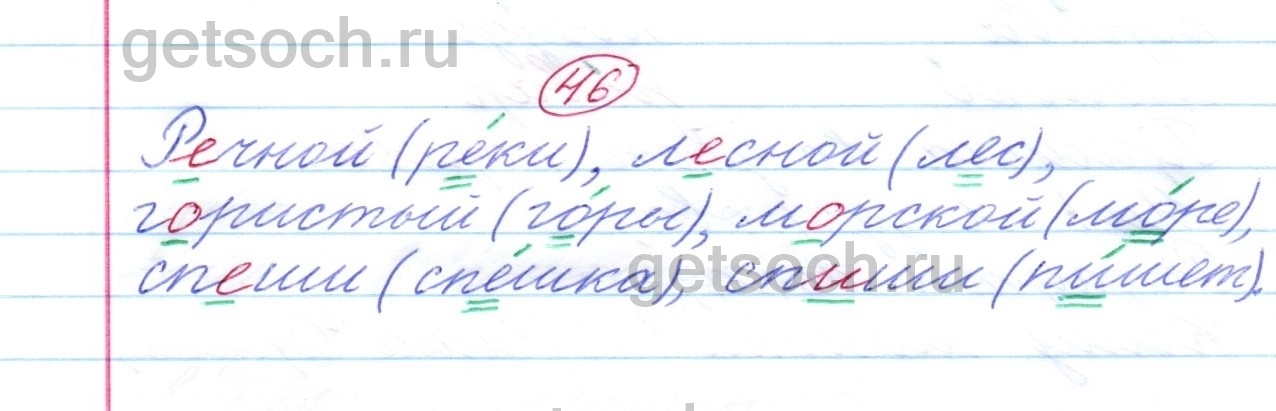 getsoch.ru
46
Речной (ре́ки), лесной (лес),
гористый (го́ры), морской (мо́ре),
спеши (спе́шка), спиши (пи́шет).
getsoch.ru